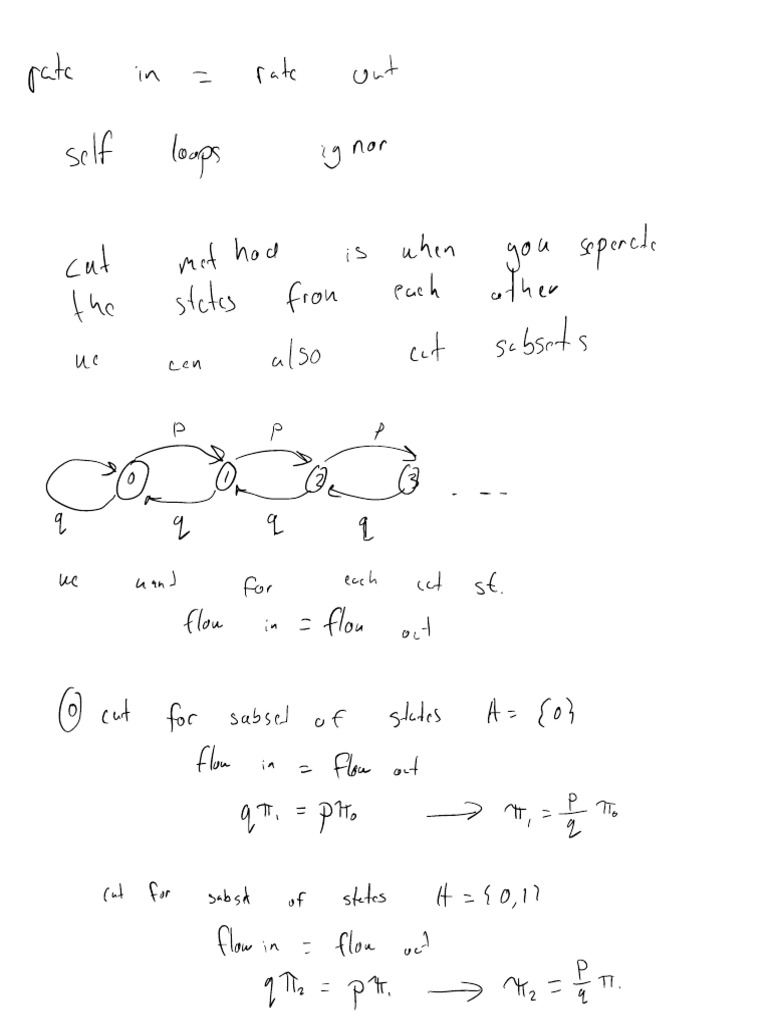 rate in = rate out
self loops ignor
cut method is when you seperate
the states from each other
we can also cut subsets
p p p
0 1 2 3 . - - -
q q q q
we want for each cut st.
flow in = flow out
0 cut for subset of states A = {0}
flow in = flow out
qπ₁ = pπ₀ → π₁ = p/q π₀
cut for subset of states A = {0,1}
flow in = flow out
qπ₂ = pπ₁ → π₂ = p/q π₁